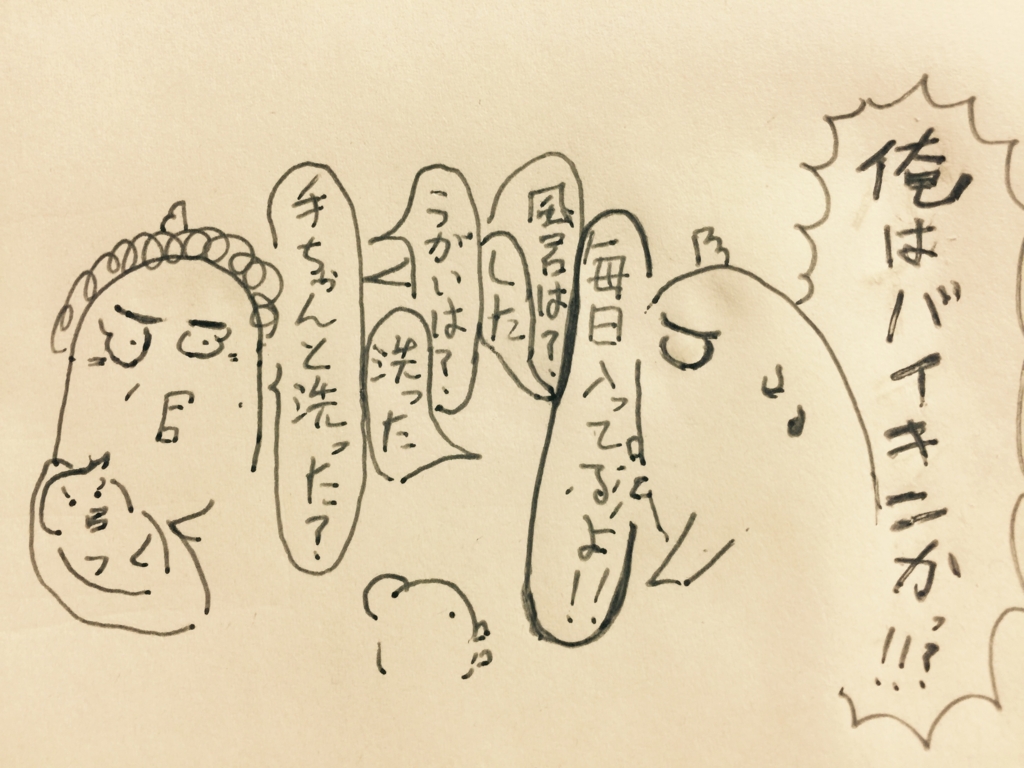 手ちゃんと洗った?
洗った
うがいは?
した
風呂は?
毎日入ってるよ!!
俺はバイキンかっ!!?